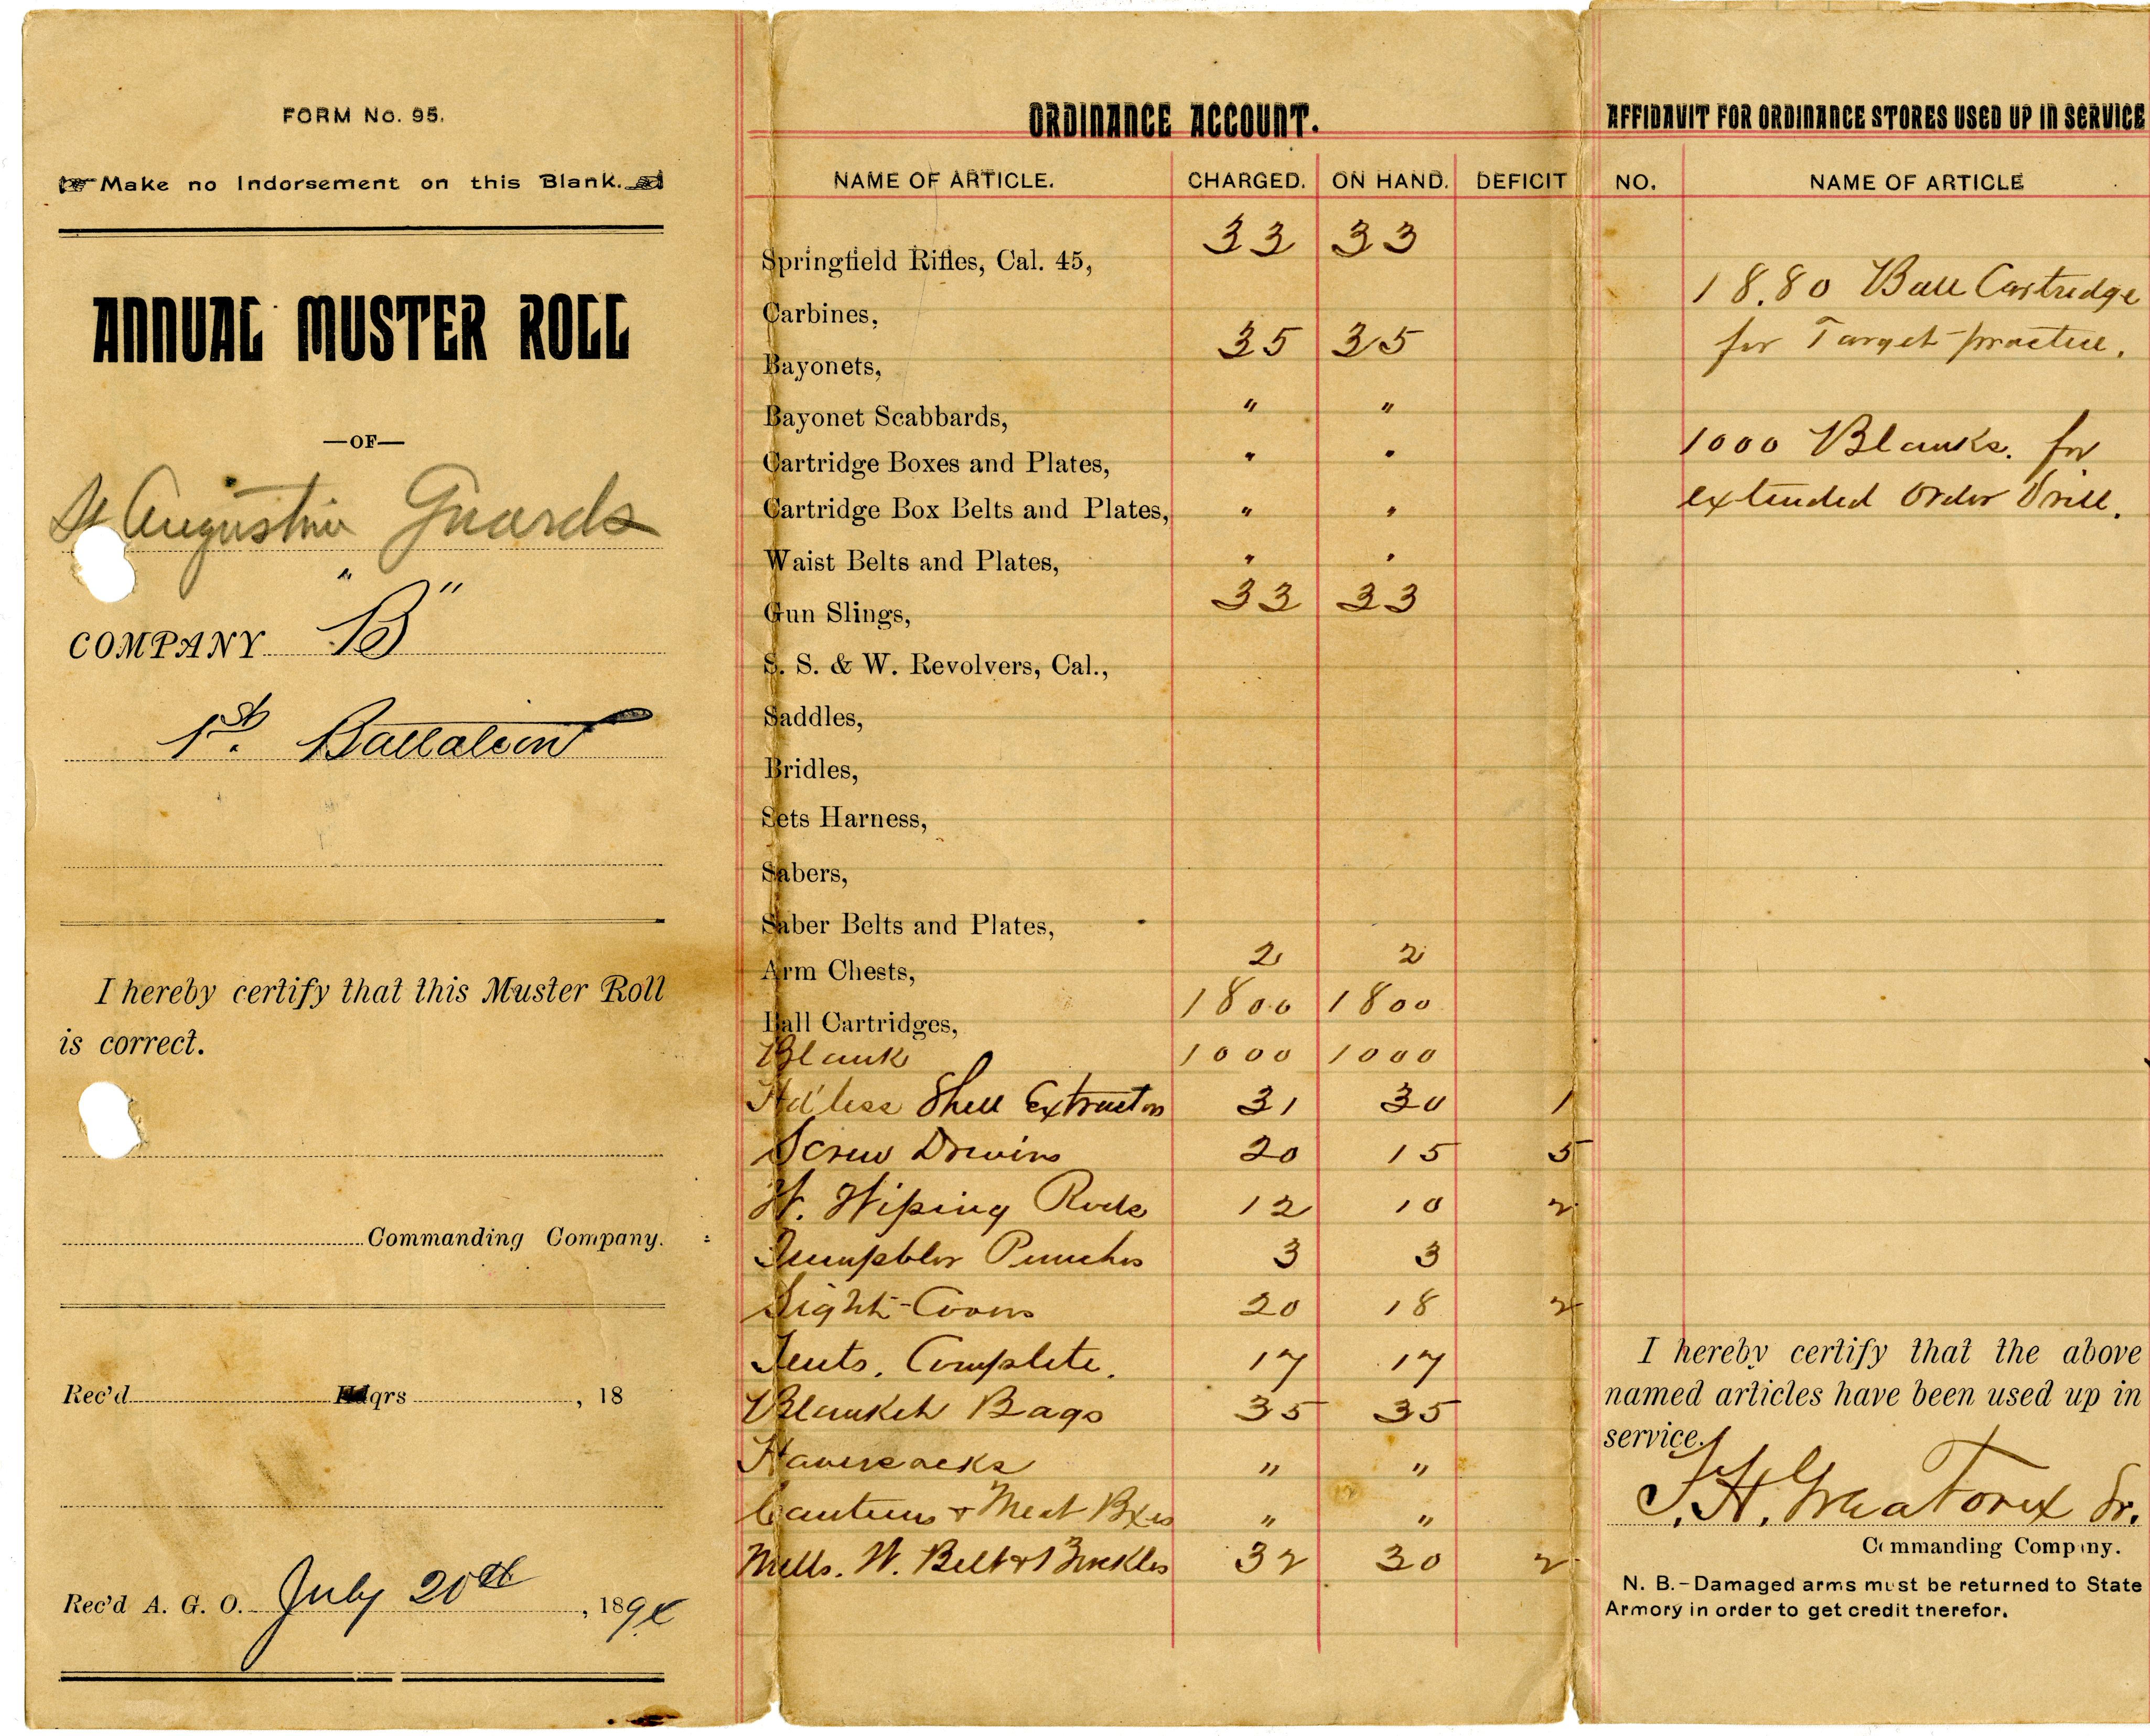 FORM No. 95.
Make no Indorsement on this Blank.
ANNUAL MUSTER ROLL
—OF—
St Augustine Guards
COMPANY "B"
1st. Battalion
I hereby certify that this Muster Roll
is correct.
Commanding Company.
Rec'd Hdqrs , 18
Rec'd A. G. O. July 20th , 189
ORDINANCE ACCOUNT.
NAME OF ARTICLE. CHARGED. ON HAND. DEFICIT
Springfield Rifles, Cal. 45, 33 33
Carbines,
Bayonets, 35 35
Bayonet Scabbards, " "
Cartridge Boxes and Plates, " "
Cartridge Box Belts and Plates, " "
Waist Belts and Plates, " "
Gun Slings, 33 33
S. S. & W. Revolvers, Cal.,
Saddles,
Bridles,
Sets Harness,
Sabers,
Saber Belts and Plates,
Arm Chests, 2 2
Ball Cartridges, 1800 1800
Blank 1000 1000
Hd'less Shell Extractors 31 30 1
Screw Drivers 20 15 5
W. Wiping Rods 12 10 2
Punches 3 3
Sight-Covers 20 18 2
Tents. Complete. 17 17
Blanket Bags 35 35
Haversacks " "
Canteens & Meat Bxes " "
Mills. W. Belt & Buckles 32 30 2
AFFIDAVIT FOR ORDINANCE STORES USED UP IN SERVICE
NO. NAME OF ARTICLE
18.80 Ball Cartridge
for Target practice.
1000 Blanks. for
extended Order Drill.
I hereby certify that the above
named articles have been used up in
service.
J. H. Greatorex Sr.
Commanding Company.
N. B.—Damaged arms must be returned to State
Armory in order to get credit therefor.